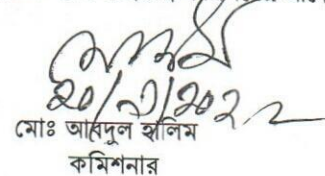 ২০/১/২০২২
মোঃ আবদুল হালিম
কমিশনার